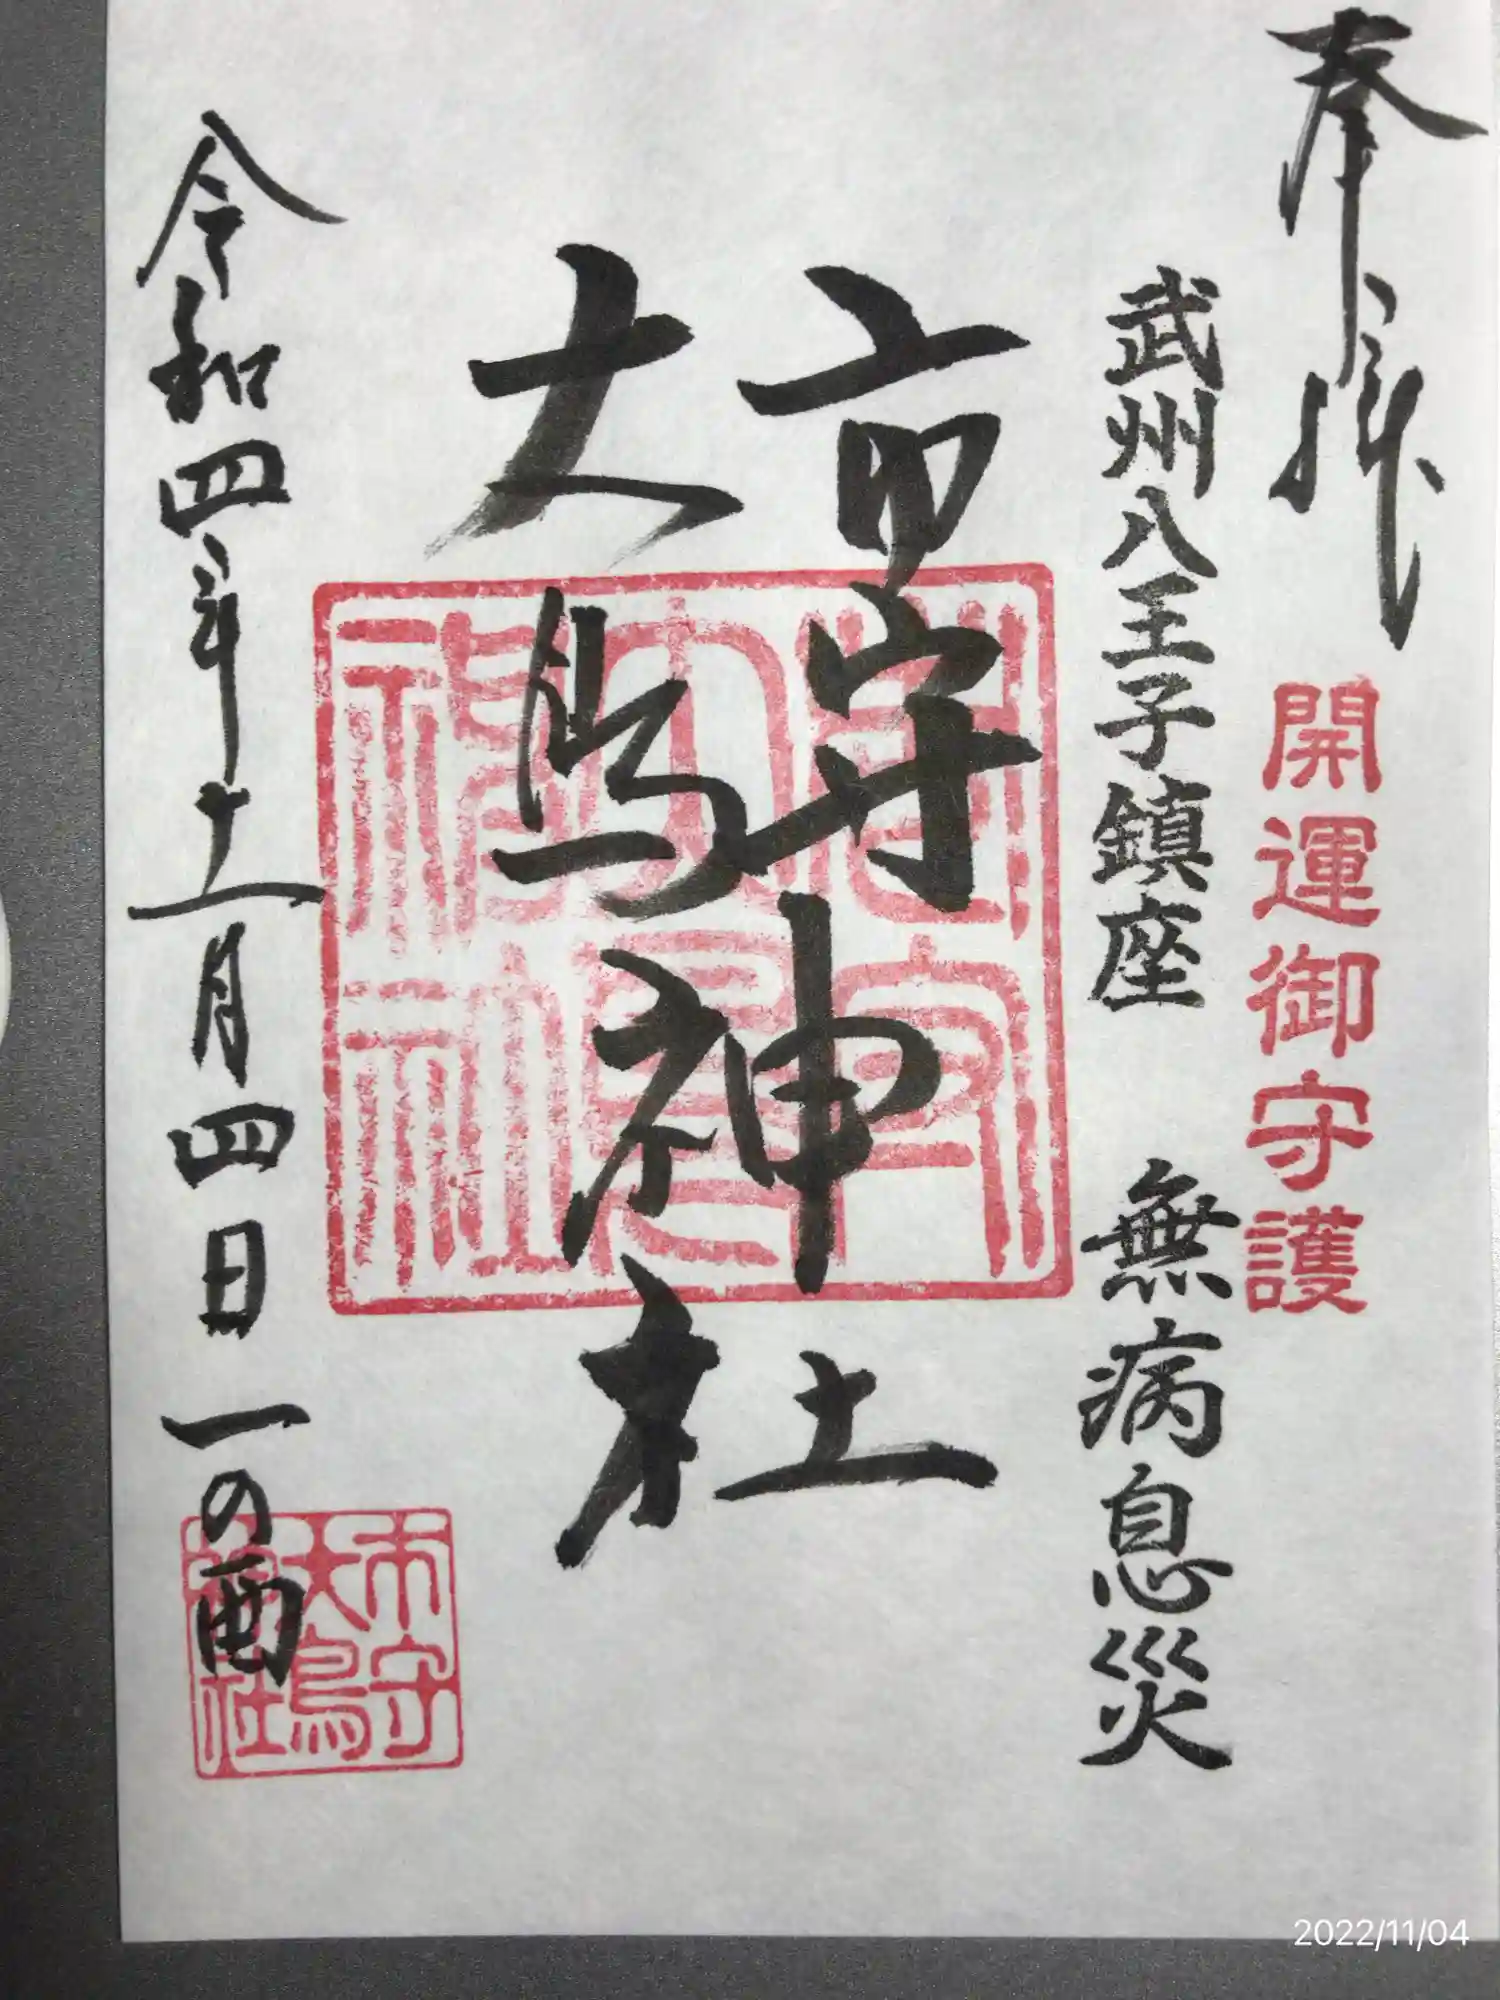 奉拝
開運御守護
武州八王子鎮座 無病息災
市守
大鳥神社
令和四年十一月四日 一の酉
市守
大鳥
神社
市守
大鳥
神社
2022/11/04